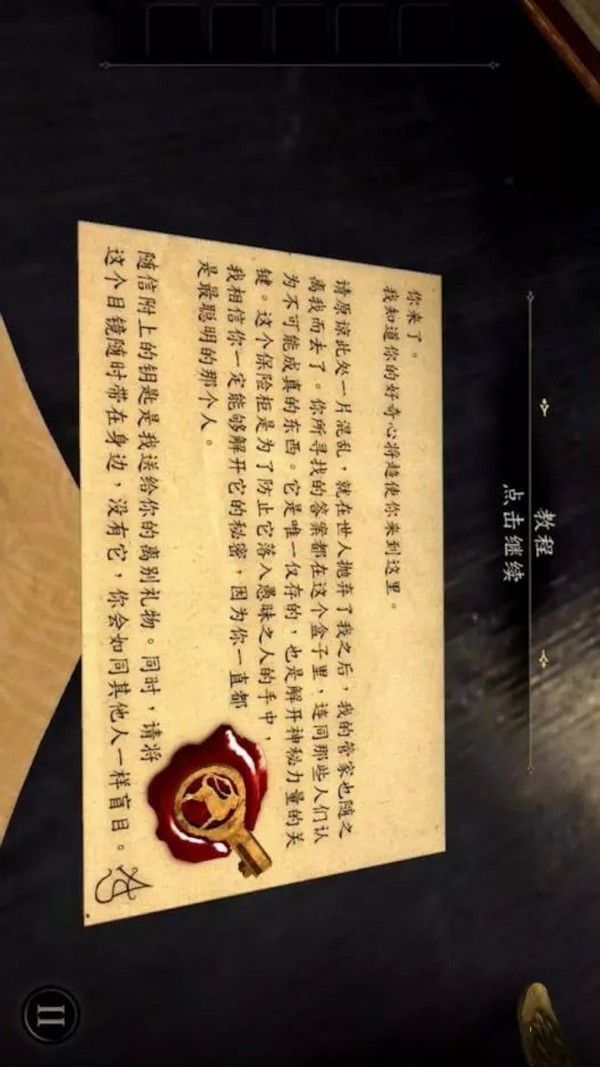 教程
点击继续
你来了。
我知道你的好奇心将趋使你来到这里。
请原谅此处一片混乱，就在世人抛弃了我之后，我的管家也随之
离我而去了。你所寻找的答案都在这个盒子里，连同那些人们认
为不可能成真的东西。它是唯一仅存的，也是解开神秘力量的关
键。这个保险柜是为了防止它落入愚昧之人的手中，
我相信你一定能够解开它的秘密，因为你一直都
是最聪明的那个人。
随信附上的钥匙是我送给你的离别礼物。同时，请将
这个目镜随时带在身边，没有它，你会如同其他人一样盲目。